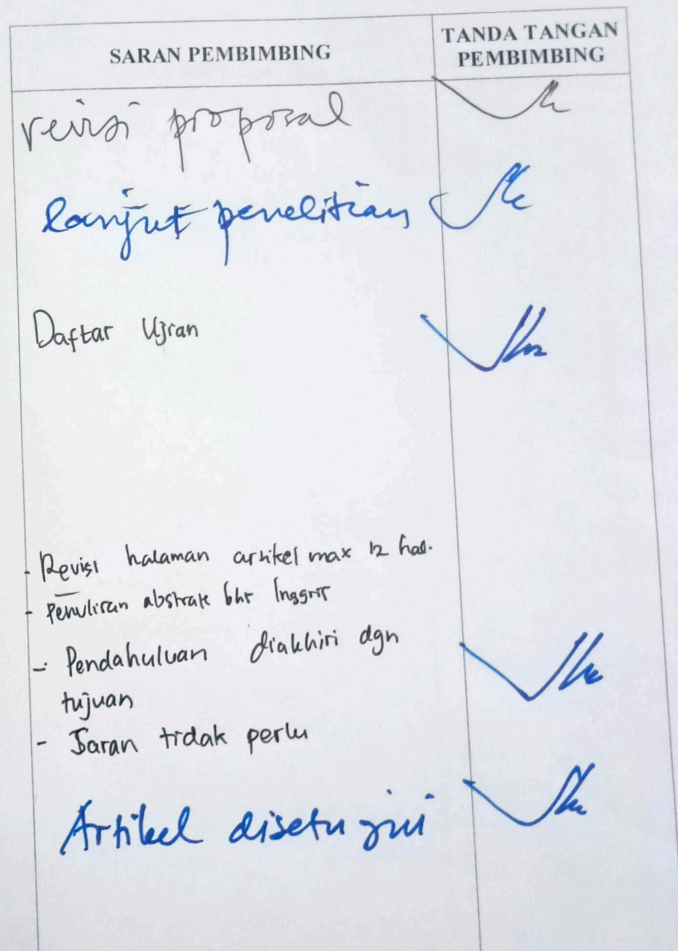 SARAN PEMBIMBING
TANDA TANGAN
PEMBIMBING
revisi proposal
lanjut penelitian
Daftar Ujian
- Revisi halaman artikel max 12 hal.
- Penulisan abstrak bhs Inggris
- Pendahuluan diakhiri dgn
tujuan
- Saran tidak perlu
Artikel disetujui